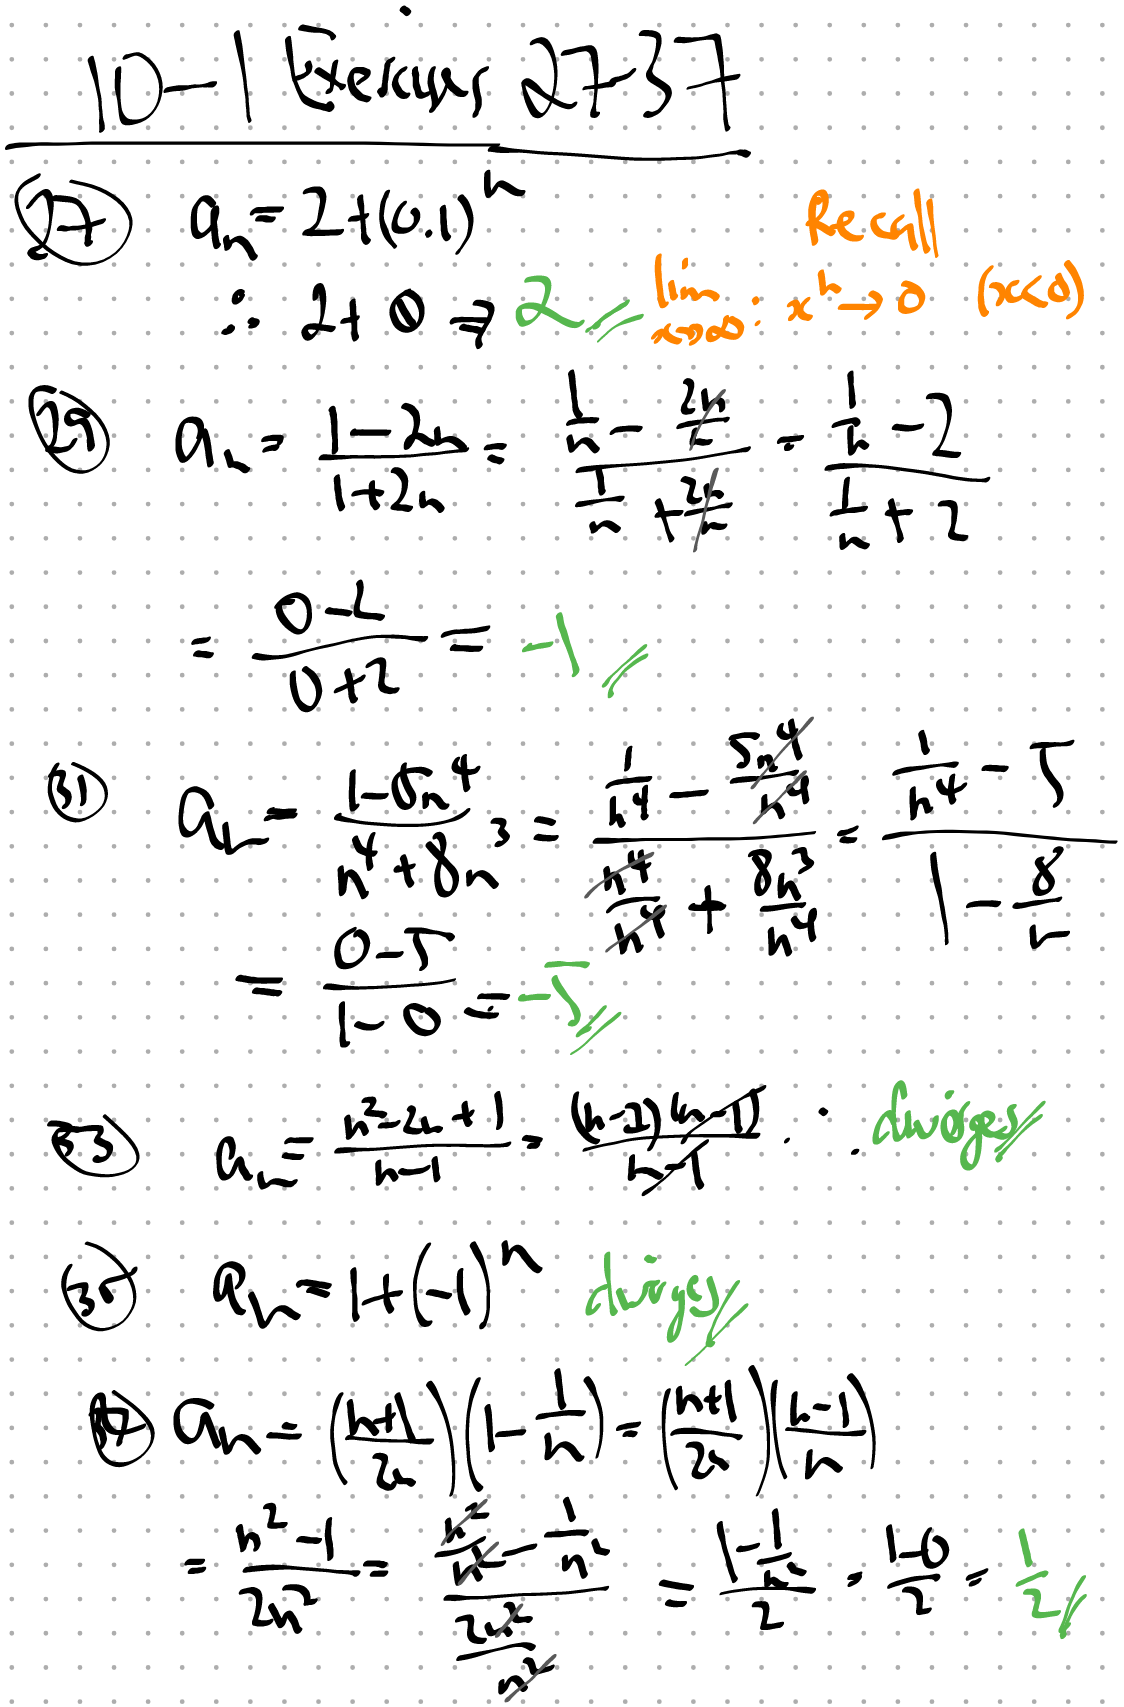 10-1 Exercises 27-37
27 aₙ = 2+(0.1)ⁿ
Recall
∴ 2+0 ⇒ 2 lim x→∞ : xⁿ → 0 (x<0)
29 aₙ = (1-2n)/(1+2n) = (1/n - 2n/n)/(1/n + 2n/n) = (1/n - 2)/(1/n + 2)
= (0-2)/(0+2) = -1
31 aₙ = (1-5n⁴)/(n⁴+8n³) = (1/n⁴ - 5n⁴/n⁴)/(n⁴/n⁴ + 8n³/n⁴) = (1/n⁴ - 5)/(1 - 8/n)
= (0-5)/(1-0) = -5
33 aₙ = (n²-2n+1)/(n-1) = (n-1)(n-1)/(n-1) ∴ diverges
35 aₙ = 1+(-1)ⁿ diverges
37 aₙ = ((n+1)/2n)(1 - 1/n) = ((n+1)/2n)((n-1)/n)
= (n²-1)/2n² = (n²/n² - 1/n²)/(2n²/n²) = (1 - 1/n²)/2 = (1-0)/2 = 1/2